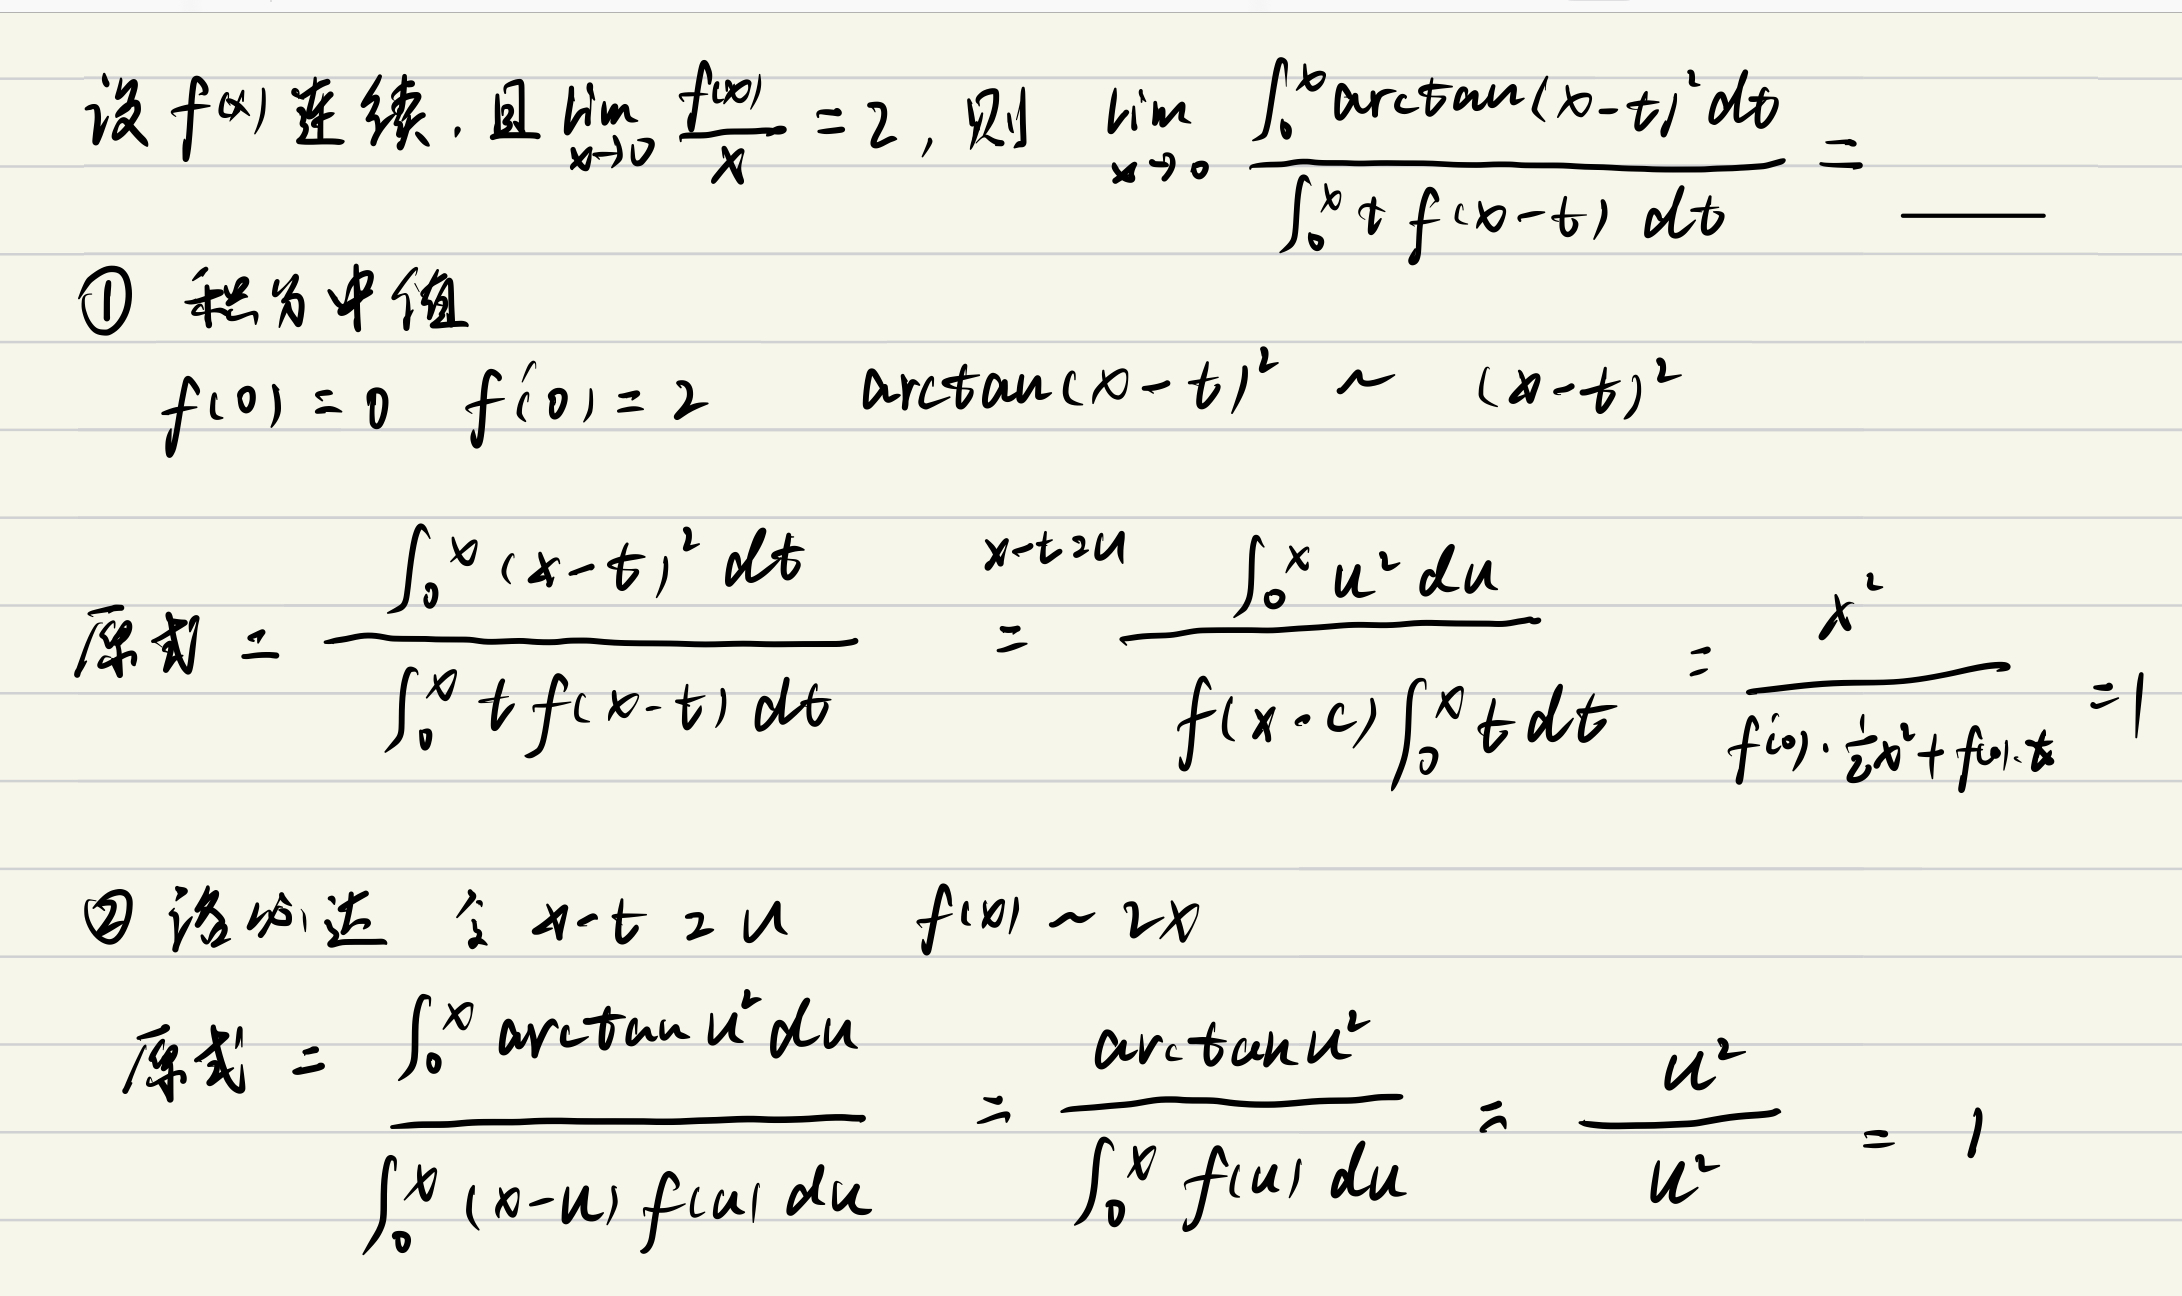 设 f(x) 连续，且 lim_{x→0} f(x)/x = 2，则 lim_{x→0} ∫₀ˣ arctan(x-t)² dt / ∫₀ˣ t f(x-t) dt = ___
① 积分中值
f(0) = 0 f'(0) = 2 arctan(x-t)² ~ (x-t)²
原式 = ∫₀ˣ (x-t)² dt / ∫₀ˣ t f(x-t) dt x-t=u = ∫₀ˣ u² du / f(x-c) ∫₀ˣ t dt = x² / f'(0)·½x² + f(0)·x = 1
② 洛必达 令 x-t = u f(x) ~ 2x
原式 = ∫₀ˣ arctan u² du / ∫₀ˣ (x-u) f(u) du = arctan u² / ∫₀ˣ f(u) du = u² / u² = 1